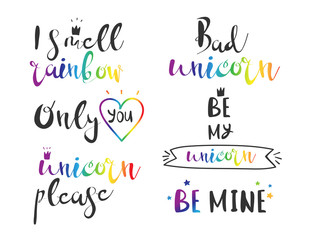 I smell
rainbow
Only you
unicorn
please
Bad
unicorn
BE
MY
unicorn
BE MINE